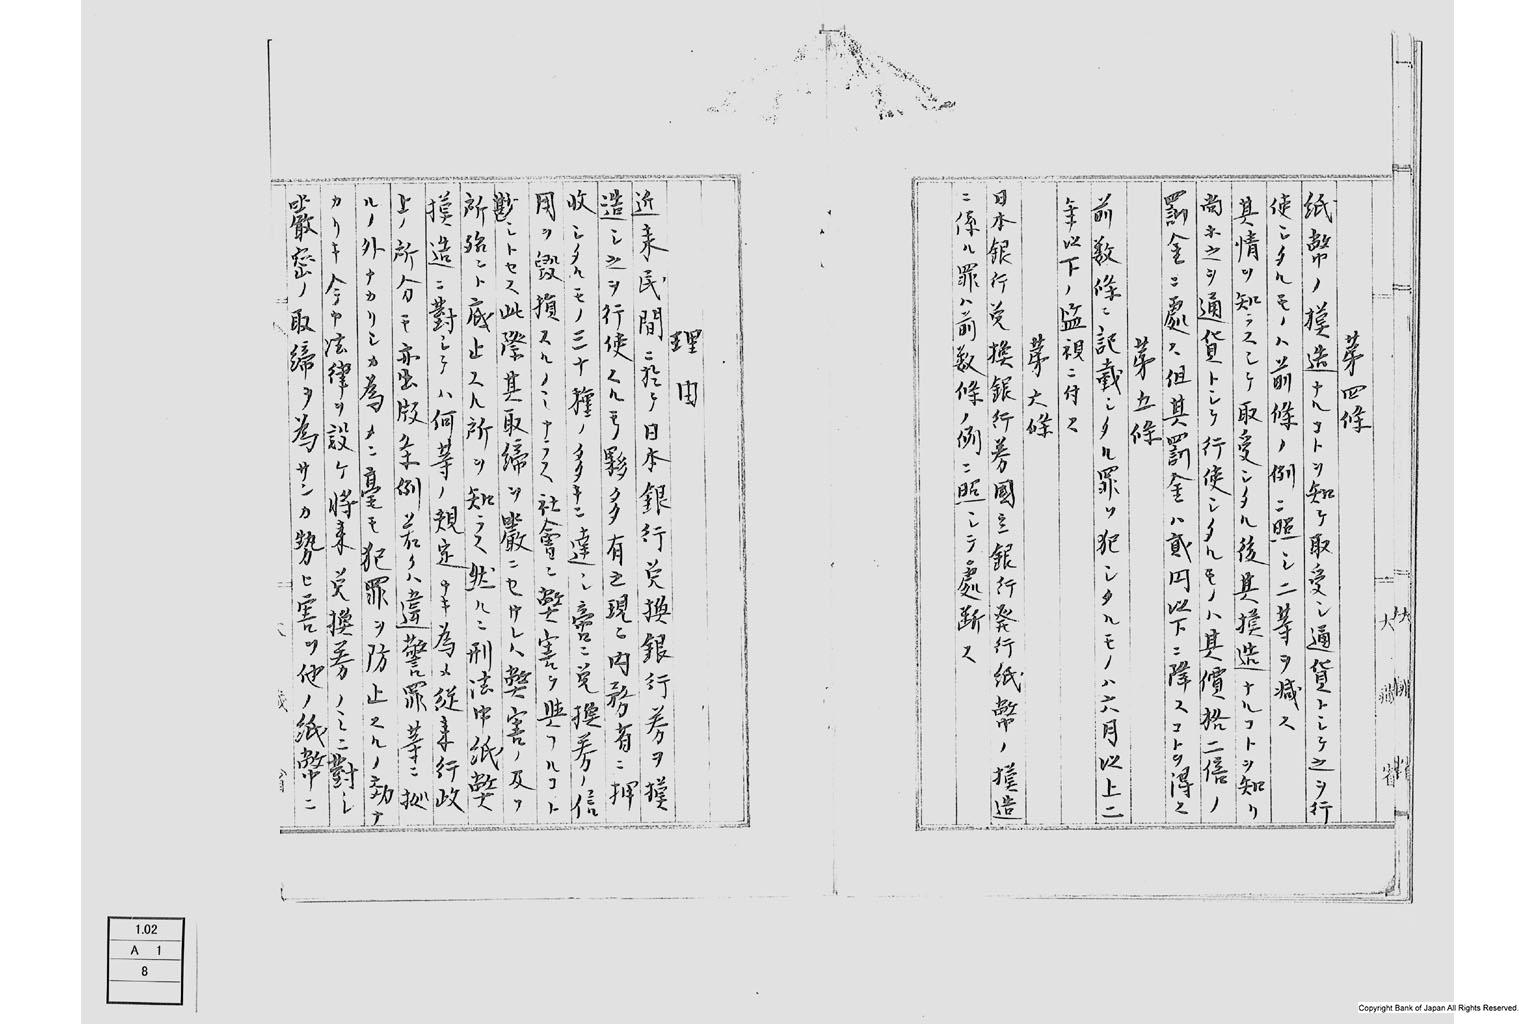 第四條
紙幣ノ摸造ナルコトヲ知テ取受シ通貨トシテ之ヲ行
使シタルモノハ前條ノ例ニ照シ二等ヲ減ス
其情ヲ知ラスシテ取受シタル後其摸造ナルコトヲ知リ
尚ホ之ヲ通貨トシテ行使シタルモノハ其價格二倍ノ
罰金ニ處ス但其罰金ハ貳円以下ニ降スコトヲ得ス
第五條
前数條ニ記載シタル罪ヲ犯シタルモノハ六月以上二
年以下ノ監視ニ付ス
第六條
日本銀行兌換銀行券國立銀行発行紙幣ノ摸造
ニ係ル罪ハ前数條ノ例ニ照シテ處断ス
理由
近来民間ニ於テ日本銀行兌換銀行券ヲ摸
造シ之ヲ行使スルモノ夥多有之現ニ内務省ニ押
收シタルモノ三十種ノ多キニ達シ啻ニ兌換券ノ信
用ヲ毀損スルノミナラス社會ニ弊害ヲ與フルコト
尠シトセス此際其取締ヲ嚴ニセサレハ弊害ノ及フ
所殆ント底止スル所ヲ知ラス然ルニ刑法中紙幣
摸造ニ對シテハ何等ノ規定ナキ為メ従来行政
上ノ所分モ亦出版条例若クハ違警罪等ニ拠
ルノ外ナカリシカ為メニ毫モ犯罪ヲ防止スルノ効ナ
カリキ今ヤ法律ヲ設ケ将来兌換券ノミニ對シ
嚴密ノ取締ヲ為サンカ勢ヒ害ヲ他ノ紙幣ニ
大蔵省
1.02
A 1
8
Copyright Bank of Japan All Rights Reserved.